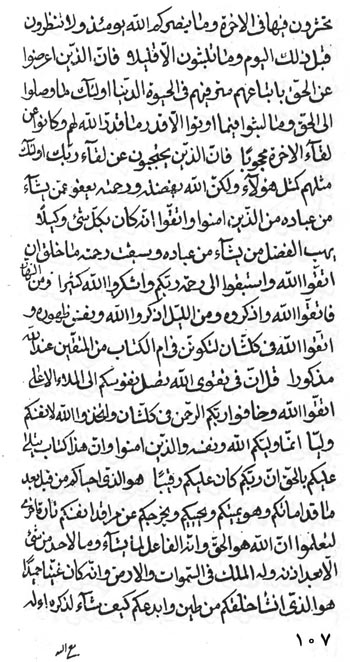 تحشرون فيها في الاخرة وما ينصركم الله يومئذ ولا تنظرون
قبل ذلك اليوم وما تلبثون الا قليلا فان الذين اعرضوا
عن الحق باتباعهم مترفهم في الحيوة الدنيا اولئك لما وصلوا
الى الحق وما لبثوا فيما اوتوا الا قدر ما قدر الله لهم وكانوا عن
لقاء الاخرة محجوبا فان الذين يحتجبون عن لقاء ربك اولئك
مثلهم كمثل هؤلاء ولكن الله بفضله ورحمته يعفو عمن يشاء
من عباده من الذين امنوا واتقوا انه كان بكل شئ وكيلا
يهب الفضل من يشاء من عباده وسبقت رحمته ما خلق ان
اتقوا الله واستبقوا الى رحمة ربكم واشكروا الله كثيرا ومن النهار
فاتقوا الله واذكروه ومن الليل اذكروا الله وبفنى ظهوره و
اتقوا الله في كلشان لتكونن في ام الكتاب من المتقين عند الله
مذكورا قل ان في تقوى الله تصل نفوسكم الى الملاء الاعلى
اتقوا الله وخافوا ربكم الرحمن في كلشان ولا تتخذن والله لانفسكم
وليا انما وليكم الله ونفسه والذين امنوا وان هذا كتاب يتلى
عليكم بالحق ان ربكم كان عليكم رقيبا هو الذي احياكم من قبل بعد
ما قد اماتكم وهو يميتكم ويحييكم ويخرجكم عن مراقد انفسكم تارة اخرى
لتعلموا ان الله هو الحق وانه الفاعل لما يشاء وما لاحد من شئ
الا بعد اذنه وله الملك في السموات والارض وانه كان غنيا حميدا
هو الذي انشا خلقكم من طين وابدعكم كيف شاء لذكره اله
١٠٧